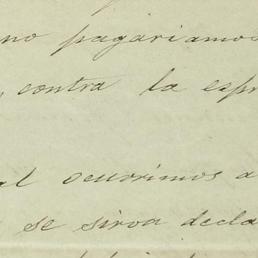 no pagariamos
, contra la espr
al ocurrimos a
se sirva decla